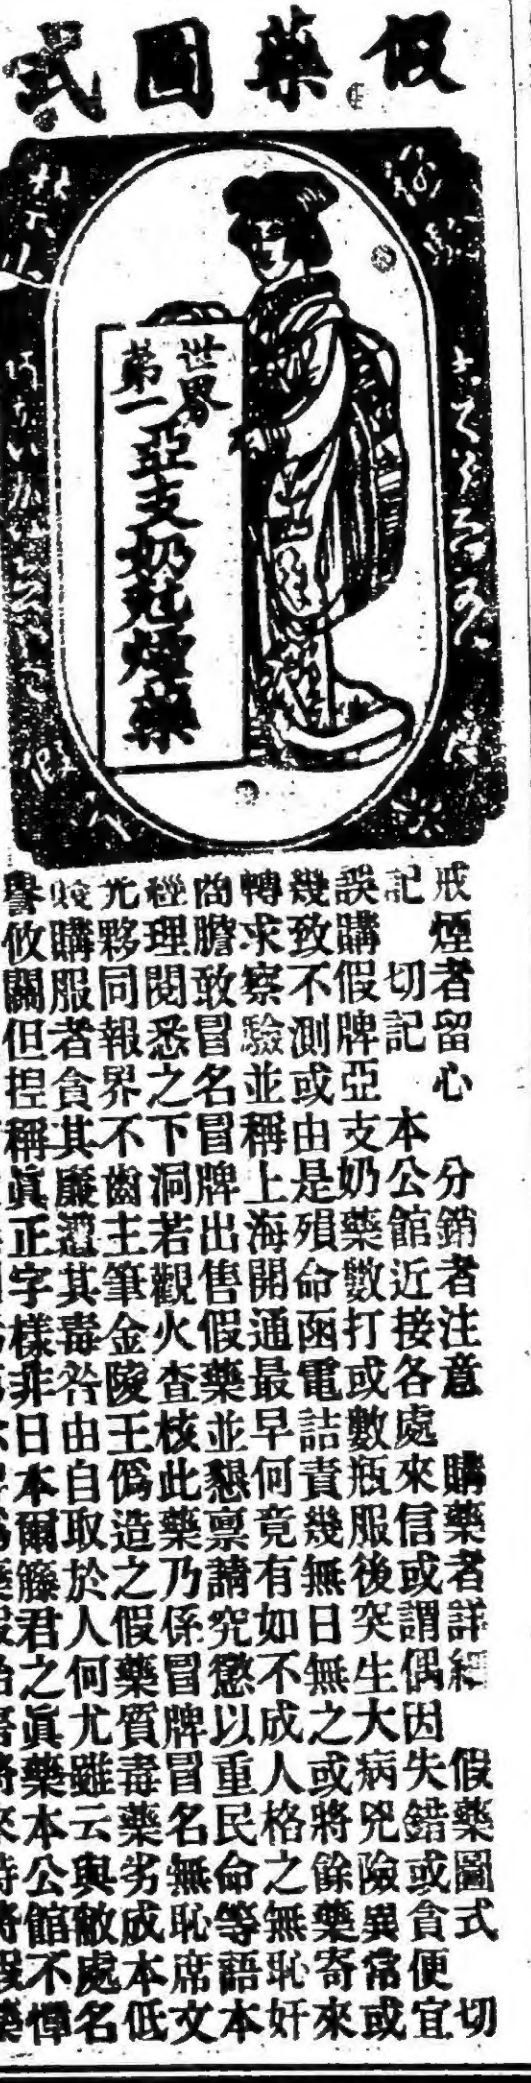 假藥圖式
世界
第一
亞支奶煙藥
戒煙者留心 分銷者注意 購藥者詳細 假藥圖式 切
記 切記 本公館近接各處來信或謂偶因失錯或貪便宜
誤購假牌亞支奶藥數打或數瓶服後突生大病兇險異常或
幾致不測或由是殞命函電詰責幾無日無之或將餘藥寄來
轉求察驗並稱上海開通最早何竟有如不成人格之無恥奸
商膽敢冒名冒牌出售假藥並懇禀請究懲以重民命等語本
經理閱悉之下洞若觀火查核此藥乃係冒牌冒名無恥席文
光夥同報界不齒主筆金陵王僞造之假藥質毒藥劣成本低
賤購服者貪其廉遭其毒咎由自取於人何尤雖云與敝處名
譽攸關但捏稱眞正字樣非日本爾籐君之眞藥本公館不憚